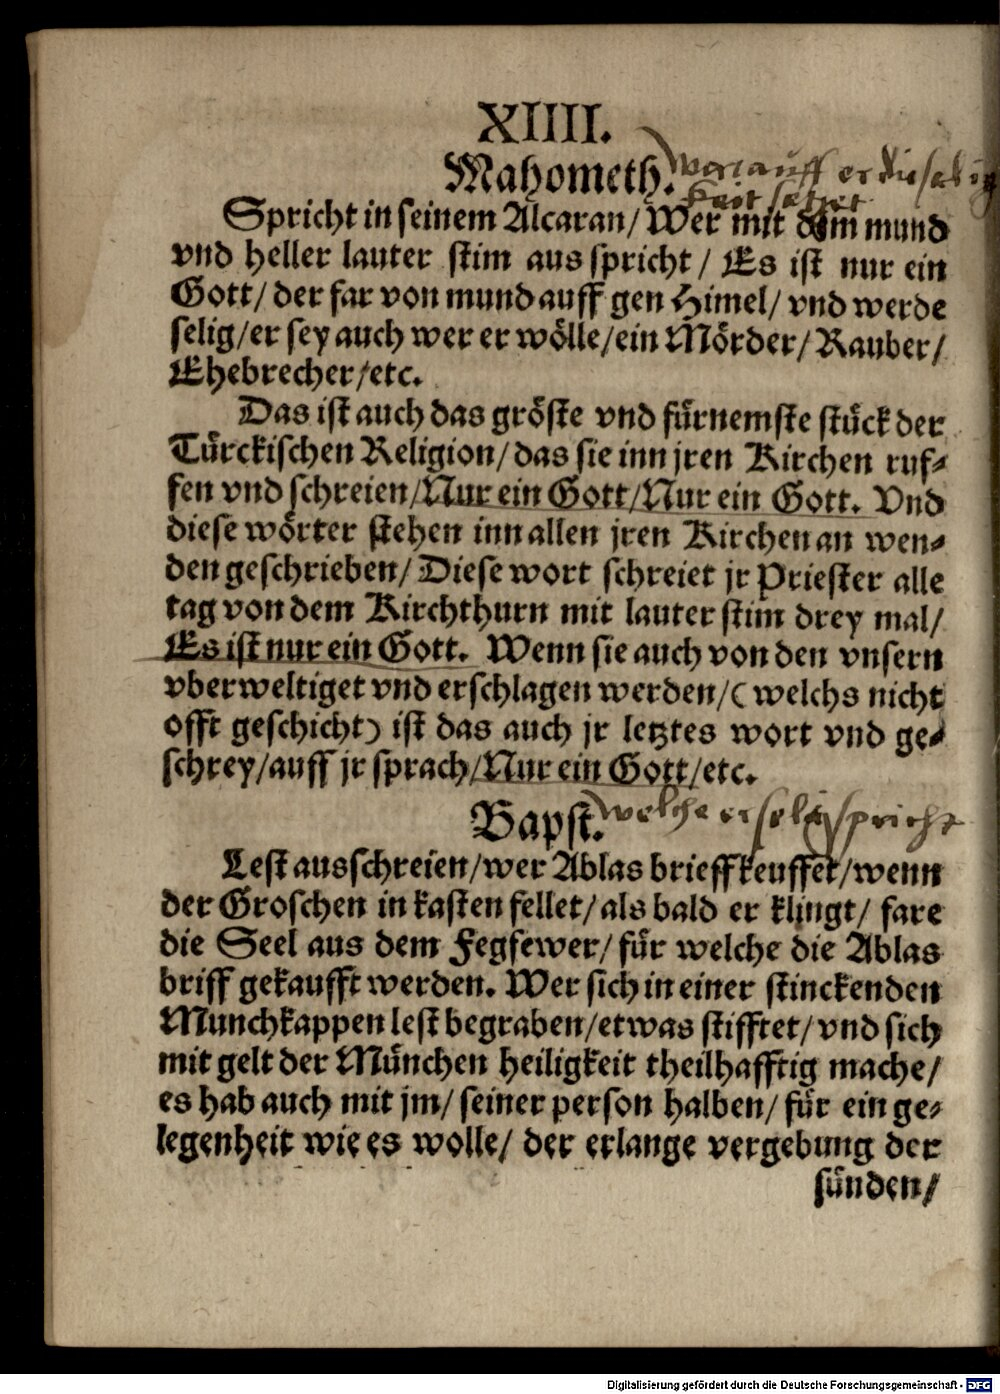 XIIII.
Mahometh. worauff er die selig
keit setzet
Spricht in seinem Alcaran/ Wer mit dem mund
vnd heller lauter stim aus spricht / Es ist nur ein
Gott/ der far von mund auff gen Himel/ vnd werde
selig/er sey auch wer er wölle/ein Mörder/ Rauber/
Ehebrecher/etc.
Das ist auch das gröste vnd fürnemste stück der
Türckischen Religion/ das sie inn jren Kirchen ruf-
fen vnd schreien/Nur ein Gott/Nur ein Gott. Vnd
diese wörter stehen inn allen jren Kirchen an wen-
den geschrieben/ Diese wort schreiet jr Priester alle
tag von dem Kirchthurn mit lauter stim drey mal/
Es ist nur ein Gott. Wenn sie auch von den vnsern
vberweltiget vnd erschlagen werden/( welchs nicht
offt geschicht) ist das auch jr letztes wort vnd ge-
schrey/auff jr sprach/Nur ein Gott/etc.
Bapst. welche er selig spricht
Lest ausschreien/wer Ablas brieff keuffet/wenn
der Groschen in kasten fellet/als bald er klingt/ fare
die Seel aus dem Fegfewer/ für welche die Ablas
briff gekaufft werden. Wer sich in einer stinckenden
Munchkappen lest begraben/etwas stifftet/vnd sich
mit gelt der München heiligkeit theilhafftig mache/
es hab auch mit jm/ seiner person halben/ für ein ge-
legenheit wie es wolle/ der erlange vergebung der
sünden/
Digitalisierung gefördert durch die Deutsche Forschungsgemeinschaft - DFG